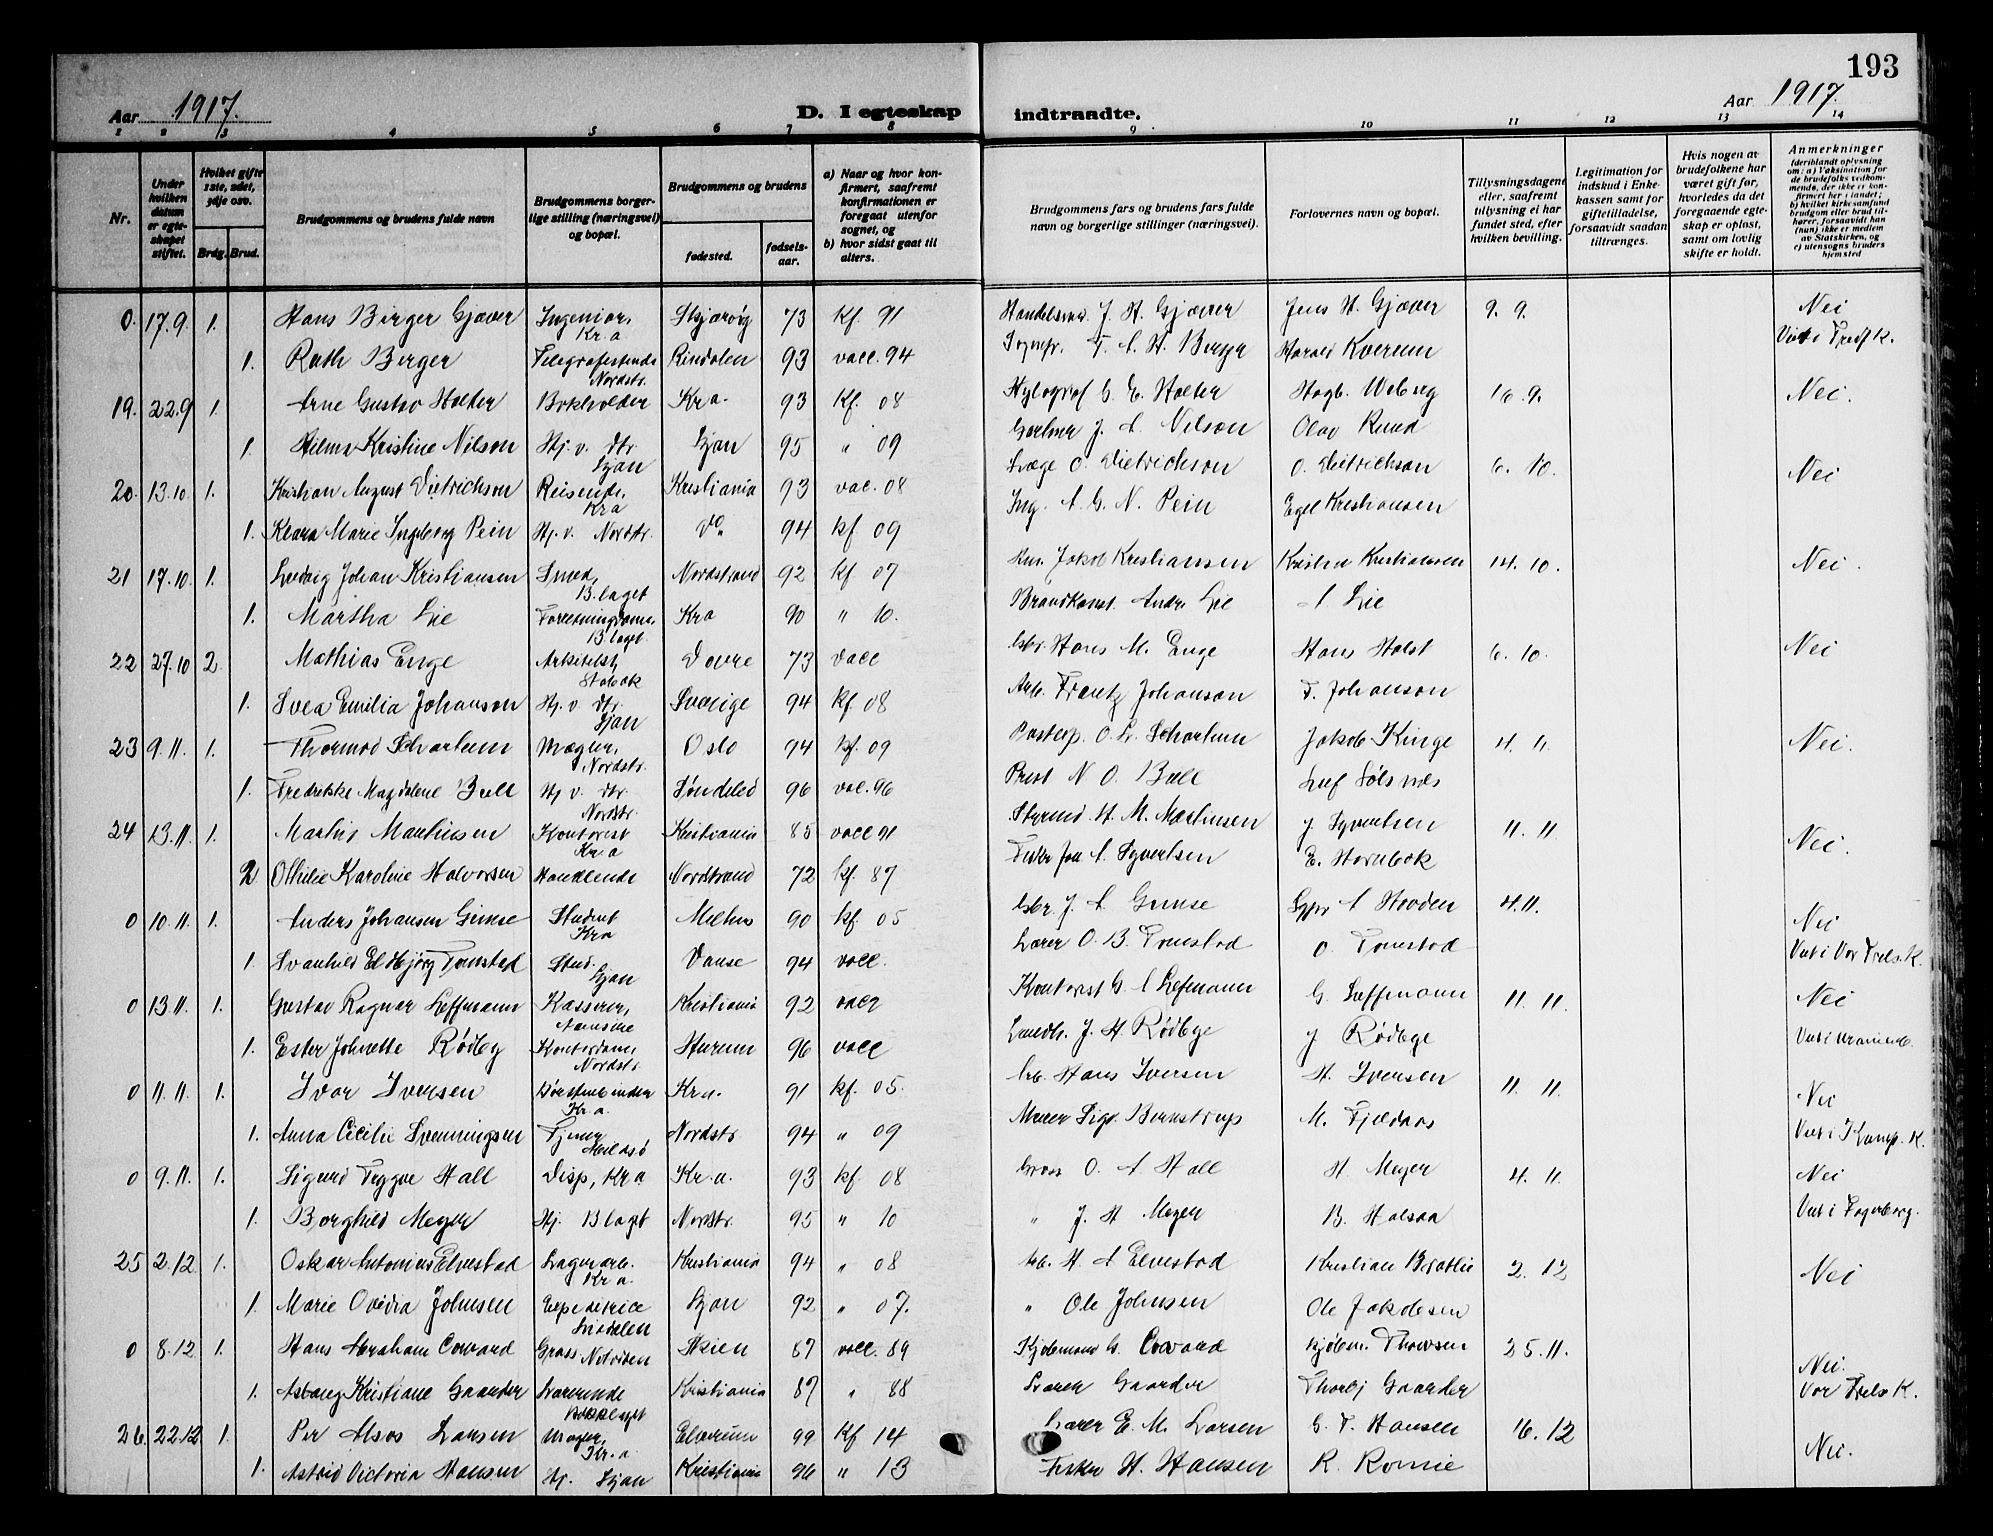 193
Aar 1917.
D. I egteskap
indtraadte.
Aar 1917.
1 2 3 4 5 6 7 8 9 10 11 12 13 14
Nr.
Under hvilken datum er egteskapet stiftet.
Hvilket gifte 1ste, 2det, 3dje osv.
Brdg. Brud.
Brudgommens og brudens fulde navn
Brudgommens borgerlige stilling (næringsvei) og bopæl.
Brudgommens og brudens
fødested.
fødselsaar.
a) Naar og hvor konfirmert, saafremt konfirmationen er foregaat utenfor sognet, og
b) hvor sidst gaat til alters.
Brudgommens fars og brudens fars fulde navn og borgerlige stillinger (næringsvei).
Forlovernes navn og bopæl.
Tillysningsdagene eller, saafremt tillysning ei har fundet sted, efter hvilken bevilling.
Legitimation for indskud i Enkekassen samt for giftetilladelse, forsaavidt saadan tiltrænges.
Hvis nogen av brudefolkene har været gift før, hvorledes da det foregaaende egteskap er opløst, samt om lovlig skifte er holdt.
Anmerkninger (deriblandt oplysning om: a) Vaksination for de brudefolks vedkommende, der ikke er konfirmert her i landet; b) hvilket kirkesamfund brudgom eller brud tilhører, forsaavidt han (hun) ikke er medlem av Statskirken, og c) utensogns bruders hjemsted
0. 17.9 1. Hans Birger Gjæver Ingeniør, Kr.a Skjærvøy 73 kf. 91 J. H. Gjæver Jens H. Gjæver 9. 9. Nei
1. Ruth Berger Nordstr. Rindalen 93 vacc. 94 Harald Kverum
19. 22.9 1. Arne Gustav Holter Bokholder Kr.a. 93 kf. 08 Xylograf G. E. Holter Hagb. Woberg 16.9. Nei.
1. Hilma Kristine Nilson Hj. v. Ljan 95 " 09 Gartner J. A. Nilson Olav Ruud
20. 13.10 1. Kristian August Dietrichson Reisende, Kr.a Kristiania 93 vac. 08 Læge O. Dietrichson O. Dietrichson 6. 10. Nei
1. Klara Marie Ingeborg Pein Hj. v. Nordstr. Do. 94 kf. 09 Ing. A. G. N. Pein Egil Kristiansen
21 17.10 1. Ludvig Johan Kristiansen Smed, B.laget Nordstrand 92 kf. 07 Jakob Kristiansen Kristian Kristiansen 14. 10. Nei.
1. Martha Lie B.laget. Kr.a 90 " 10. Andr. Lie A Lie
22 27.10 2. Mathias Enge Arkitekt, Stabæk Dovre 73 vacc Hans M. Enge Hans Holst 6. 10. Nei
1. Svea Emilia Johanson Hj. v. Ljan Sverige 94 kf. 08 Arb. Frantz Johanson F. Johanson
23 9.11. 1. Thormod Scharlum Mægler, Nordstr. Oslo 94 kf. 09 O. L. Scharlum Jakob Kinge 4. 11. Nei.
1. Fredrikke Magdalene Bull Hj. v. Nordstr. Søndeled 96 vac. 96 Prest N. O. Bull Leif Sølsnes
24 13.11. 1. Mathis Mathisen Kontorist Kr.a Kristiania 85 vacc 91 H. M. Mathisen J. Syvertsen 11. 11. Nei.
2 Othilie Karoline Halvorsen Handlende Nordstrand 72 kf. 87 Fisker A. Syvertsen E. Hornbæk
0 10.11. 1. Anders Johansen Gimse Student Kr.a Melhus 90 kf. 05 Gbr. J. A. Gimse 4.11. Nei
1. Svanhild Eldbjørg Tomstad Stud. Ljan Vanse 94 vacc. Lærer O. B. Tomstad O. Tomstad Viet i Vor Frels. K.
0 13.11. 1. Gustav Ragnar Leffmann Kasserer, Kristiania 92 vacc Kontorist G. A Leffmann G. Leffmann 11. 11. Nei
1. Ester Johnette Rødby Kontordame, Nordstr. Hurum 96 vacc Landh. J. H. Rødbye J Rødbye
0 11.11. 1. Ivar Iversen Børstenbinder Kr.a. Kr.a. 91 kf. 05. Arb. Hans Iversen H. Iversen 11. 11. Nei
1. Anna Cecilie Svenningsen Nordstr. 94 " 09
0 9.11. 1. Sigurd Trygve Hall Disp., Kr.a Kr.a. 93 kf. 08 Gross O. A Hall H. Meyer 4. 11. Nei
1. Borghild Meyer Hj. B.laget Nordstr. 95 " 10 " J. H Meyer Viet i Fagerborg.
25 2.12 1. Oskar Antonius Elvestad Lagerarb. Kr.a. Kristiania 94 " 08 Arb. H. A Elvestad Kristian Bratlie 2. 12 Nei
1. Marie Ovidia Johnsen Expeditrice Ljan 92 " 07. " Ole Johnsen Ole Jakobsen
0 8.12 1. Hans Abraham Coward Gross. Skien 87 vacc. 89 Kjøbmand G. Coward Kjøbm. 25.11. Nei.
1. Asbørg Kristiane Gaarder Lærerinde Bækkelaget Kristiania 87 " 88 Gaarder Thorbj Gaarder Vor Frels K.
26. 22.12 1. Per Moss Larsen Kr.a. Elverum 99 kf 14 Lærer E. M. Larsen G. T. Hansen 16. 12 Nei.
1. Astrid Victoria Hansen Hj. Ljan Kristiania 96 " 13 Fisker H. Hansen R. Romie